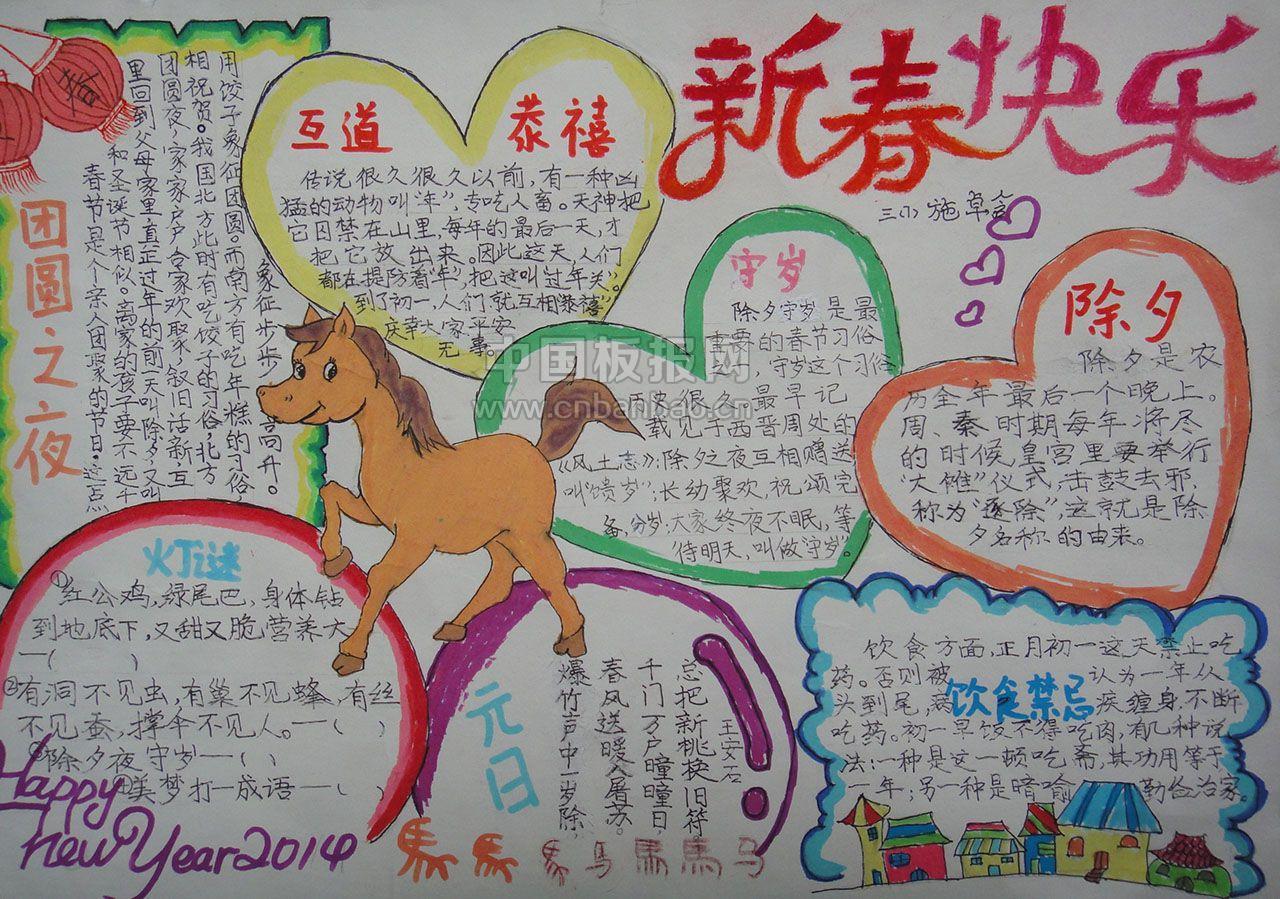 新春快乐
三(1) 施卓含
春
团圆之夜
春节是个亲人团聚的节日。这点
和圣诞节相似。离家的孩子要不远千
里回到父母家里。真正过年的前一天叫除夕，又叫
团圆夜，家家户户合家欢聚，叙旧话新，互
相祝贺。我国北方此时有吃饺子的习俗，北方
用饺子象征团圆。而南方有吃年糕的习俗，
象征步步高升。
互道 恭禧
传说很久很久以前，有一种凶
猛的动物叫“年”，专吃人畜。天神把
它囚禁在山里，每年的最后一天，才
把它放出来。因此这天，人们
都在提防着“年”，把这叫过年关。
到了初一，人们就互相恭禧
庆幸大家平安
无事。
守岁
除夕守岁是最
重要的春节习俗
之一，守岁这个习俗
历史很久。最早记
载见于西晋周处的
《风土志》：除夕之夜互相赠送
叫“馈岁”；长幼聚欢，祝颂完
备，分岁；大家终夜不眠，等
待明天，叫做“守岁”。
除夕
除夕是农
历全年最后一个晚上。
周、秦时期每年将尽
的时候皇宫里要举行
“大傩”仪式，击鼓去邪，
称为“逐除”，这就是除
夕名称的由来。
灯谜
①红公鸡，绿尾巴，身体钻
到地底下，又甜又脆营养大
—( )
②有洞不见虫，有巢不见蜂，有丝
不见蚕，撑伞不见人。—( )
除夕夜守岁—( )
美梦打一成语—( )
Happy
new Year 2014
元日
王安石
爆竹声中一岁除
春风送暖入屠苏。
千门万户瞳瞳日，
总把新桃换旧符
馬 馬 马 馬 馬 马
饮食禁忌
饮食方面，正月初一这天禁止吃
药。否则被认为一年从
头到尾，病疾缠身，不断
吃药。初一早饭不得吃肉，有几种说
法：一种是这一顿吃斋，其功用等于
一年；另一种是暗喻勤俭治家。
中国板报网
www.cnbanbao.cn